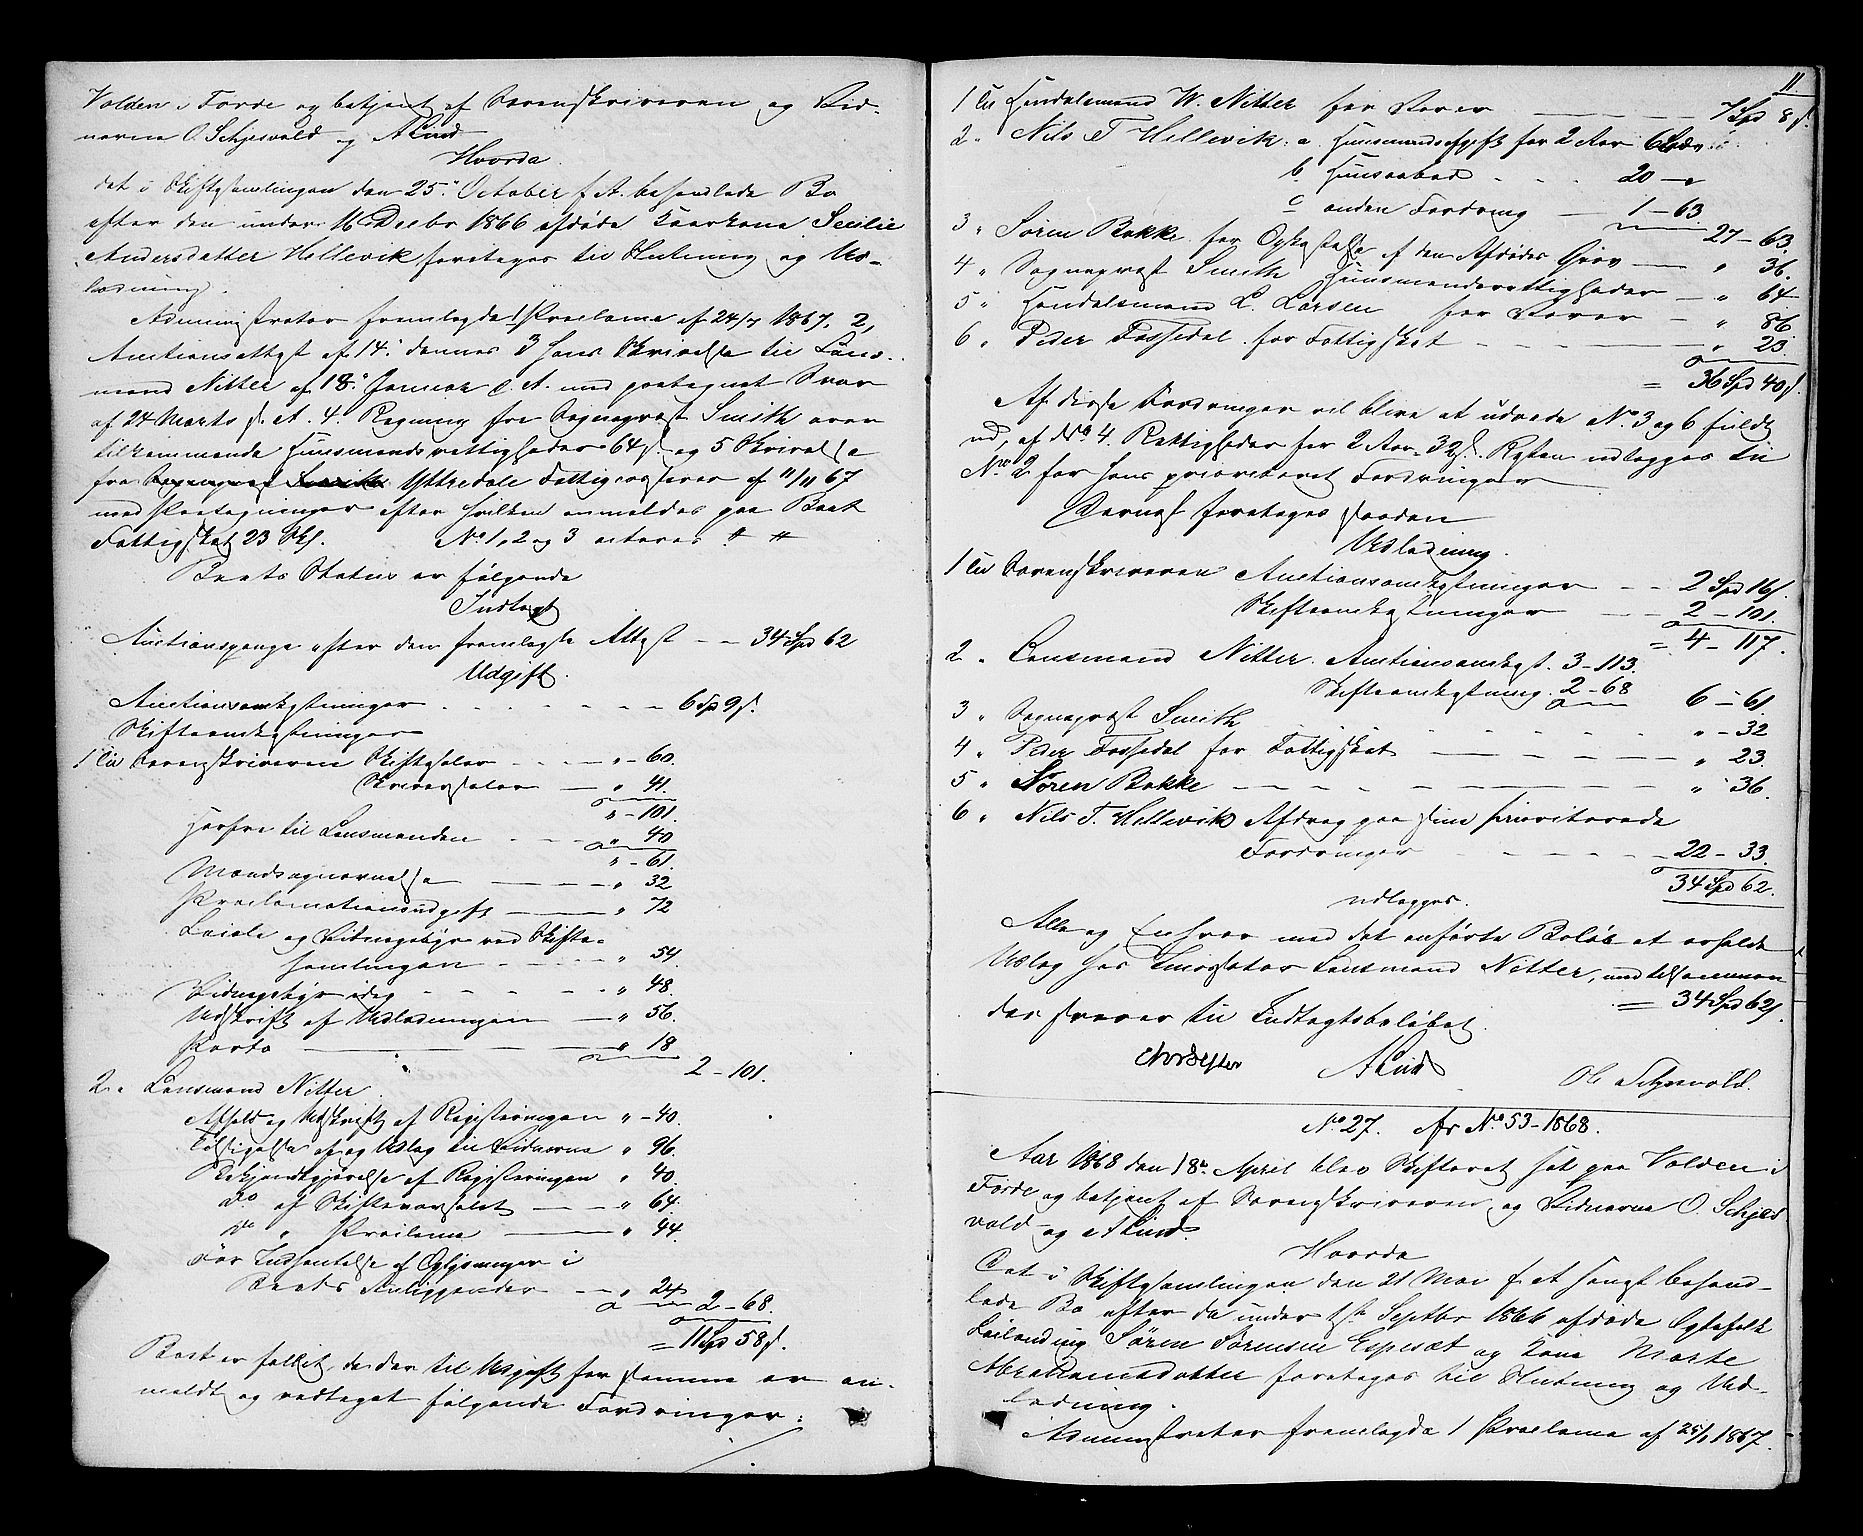 Volden i Førde og betjent af Sorenskriveren og Vid-
nerne O. Schjesvold og A Lind
Hvorda
det i Skiftesamlingen den 25. October f. A. behandlede Bo
efter den under 16 Decbr 1866 afdøde Kaarkone Secilie
Andersdatter Hellevik foretoges til Slutning og Ud-
lodning.
Administrator fremlagde 1 Proclama af 24/7 1867. 2,
Auctionsattest af 14. dennes 3 hans Skrivelse til Lens-
mand Nitter af 18. Januar d. A. med paategnet Svar
af 24 Marts s. A. 4. Regning fra Sogneprest Smith over
tilkommende Huusmandsrettigheder 64 s. og 5 Skrivelse
fra Yttredale Fattigcasserer af 11/11 67
med Paategninger efter hvilken anmeldes paa Boet
Fattigskat 23 Sk. No 1, 2 og 3 acteres
Boets Status er følgende
Indtægt
Auctionspenge efter den fremlagte Attest - - 34 Spd 62
Udgift.
Auctionsomkostninger - - - - 6 Sp 9 s.
Skifteomkostninger
1 Til Sorenskriveren Skiftesalær - - - " - 60.
Skriversalær - " 41.
" - 101.
Herfra til Lensmanden - - - " 40
" - 61.
Mandsopnævnelse - - " 32
Proclamationsudgift - " 72
Leie og Vidnegebyr ved Skifte-
samlingen - - - " 54.
Vidnegebyr idag - - - " 48.
Udskrift af Udlodningen - " 56.
Porto - " 18
2 - 101.
2 " Lensmand Nitter.
Afhold og Udskrift af Registreringen " - 40.
Tilsigelse af og Udlæg til Vidnerne " 96.
Bekjendtgjørelse af Registreringen " 40.
Do af Skiftevarselet - " 64.
Do " Proclama - " 44.
For Indhentelse af Oplysninger i
Boets Anliggender - " 24
2 - 68.
= 11 Spd 58 s.
Boet er fallit, da der til Udgift for samme er an-
meldt og vedtaget følgende Fordringer:
11.
1 Til Handelsmand W. Nitter for Varer - 7 Spd 8 s.
2 " Nils T Hellevik: a. Huusmandsafgift for 2 Aar 6
b. Huusaabod - - - 20 - "
c anden Fordring - 1 - 63.
27 - 63.
3 " Søren Bakke for Opkastelse af den Afdødes Grav - " 36.
4 " Sogneprest Smith Huusmandsrettigheder - " 64
5 " Handelsmand L. Larsen for Varer - " 86
6 " Peder Fossedal for Fattigskat - - - " 23.
= 36 Spd 40 s.
Af disse Fordringer vil blive at udrede No 3 og 6 fuldt
ud, af No 4. Rettigheder for 2 Aar 32 s. Resten udlægges til
No 2 for hans prioriteret Fordringer
Dernæst foretoges saadan
Udlodning.
1 Til Sorenskriveren Auctionsomkostninger - - 2 Spd 16 s.
Skifteomkostninger - - 2 - 101.
= 4 - 117.
2 " Lensmand Nitter. Auctionsomkost. 3 - 113.
Skifteomkostning. 2 - 68 6 - 61
3 " Sogneprest Smith - - - " - 32
4 " Peder Fossedal for Fattigskat - - - " 23.
5 " Søren Bakke - - - - " 36.
6 " Nils T. Hellevik Afdrag paa sine prioriterede
Fordringer - - - 22 - 33.
34 Spd 62.
udlægges.
Alle og Enhver med det anførte Beløb at erholde
Udlæg hos Incassator Lensmand Nitter, med tilsammen
= 34 Spd 62 s.
der svarer til Indtægtsbeløbet.
A Lind
Ol Schjesvold.
No 27. Afr No 53 - 1868.
Aar 1868 den 18. April blev Skifteret sat paa Volden i
Førde og betjent af Sorenskriveren og Vidnerne O. Schjes
vold og A Lind.
Hvorda
Det i Skiftesamlingen den 21 Mai f. A. hengst behand-
lede Bo efter de under 1ste Septbr 1866 afdøde Egtefolk
Leilending Søren Sørensen Espesæt og Kone Marte
Abrahamsdatter foretoges til Slutning og Ud-
lodning.
Administrator fremlagde 1 Proclama af 25/1 1867.